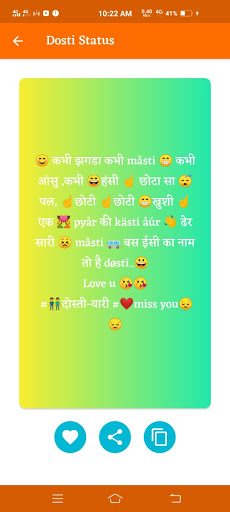 10:22 AM 0.40 KB/s 4G 41%
Dosti Status
😀 कभी झगडा कभी måsti 😁 कभी
आंसु ,कभी 😄हंसी ☝ छोटा सा 😴
पल, ☝छोटी ☝छोटी 😁खुशी ☝
एक 💑 pyår की kästi åúr 👏 ढेर
सारी 😣 måsti 🚌 बस ईसी का नाम
तो है døsti..😃
Love u 😘😘
#👬दोस्ती-यारी #❤️miss you😔
😔